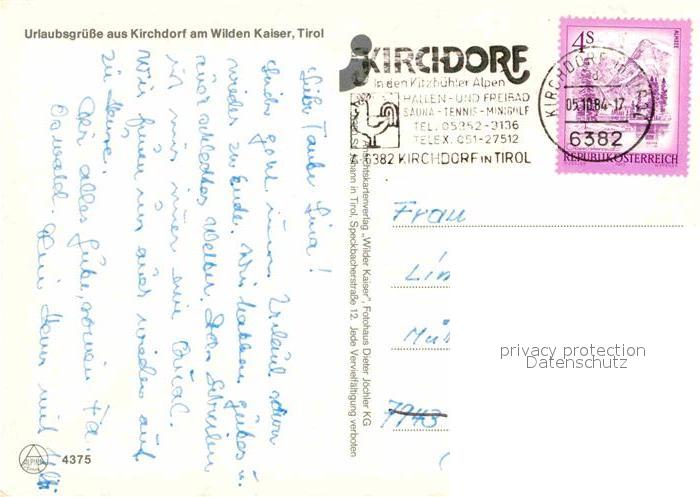 Urlaubsgrüße aus Kirchdorf am Wilden Kaiser, Tirol
Liebe Tante Lina!
Leider geht unser Urlaub schon
wieder zu Ende. Wir hatten gutes u.
auch schlechtes Wetter. Das Schreiben
ist mir immer eine Qual.
Wir freuen uns auch wieder auf
zu Hause.
Dir alles Gute,
Oswald. Dein Hans mit
4375
KIRCHDORF
in den Kitzbühler Alpen
HALLEN- UND FREIBAD
SAUNA-TENNIS-MINIGOLF
TEL. 05352-3136
TELEX. 051-27512
A-6382 KIRCHDORF IN TIROL
4S
ALMSEE
REPUBLIK ÖSTERREICH
KIRCHDORF
05.10.84-17
6382
Ansichtskartenverlag „Wilder Kaiser", Fotohaus Dieter Jöchler KG
in Tirol, Speckbacherstraße 12. Jede Vervielfältigung verboten
Frau
Lin
Mü
7943
privacy protection
Datenschutz